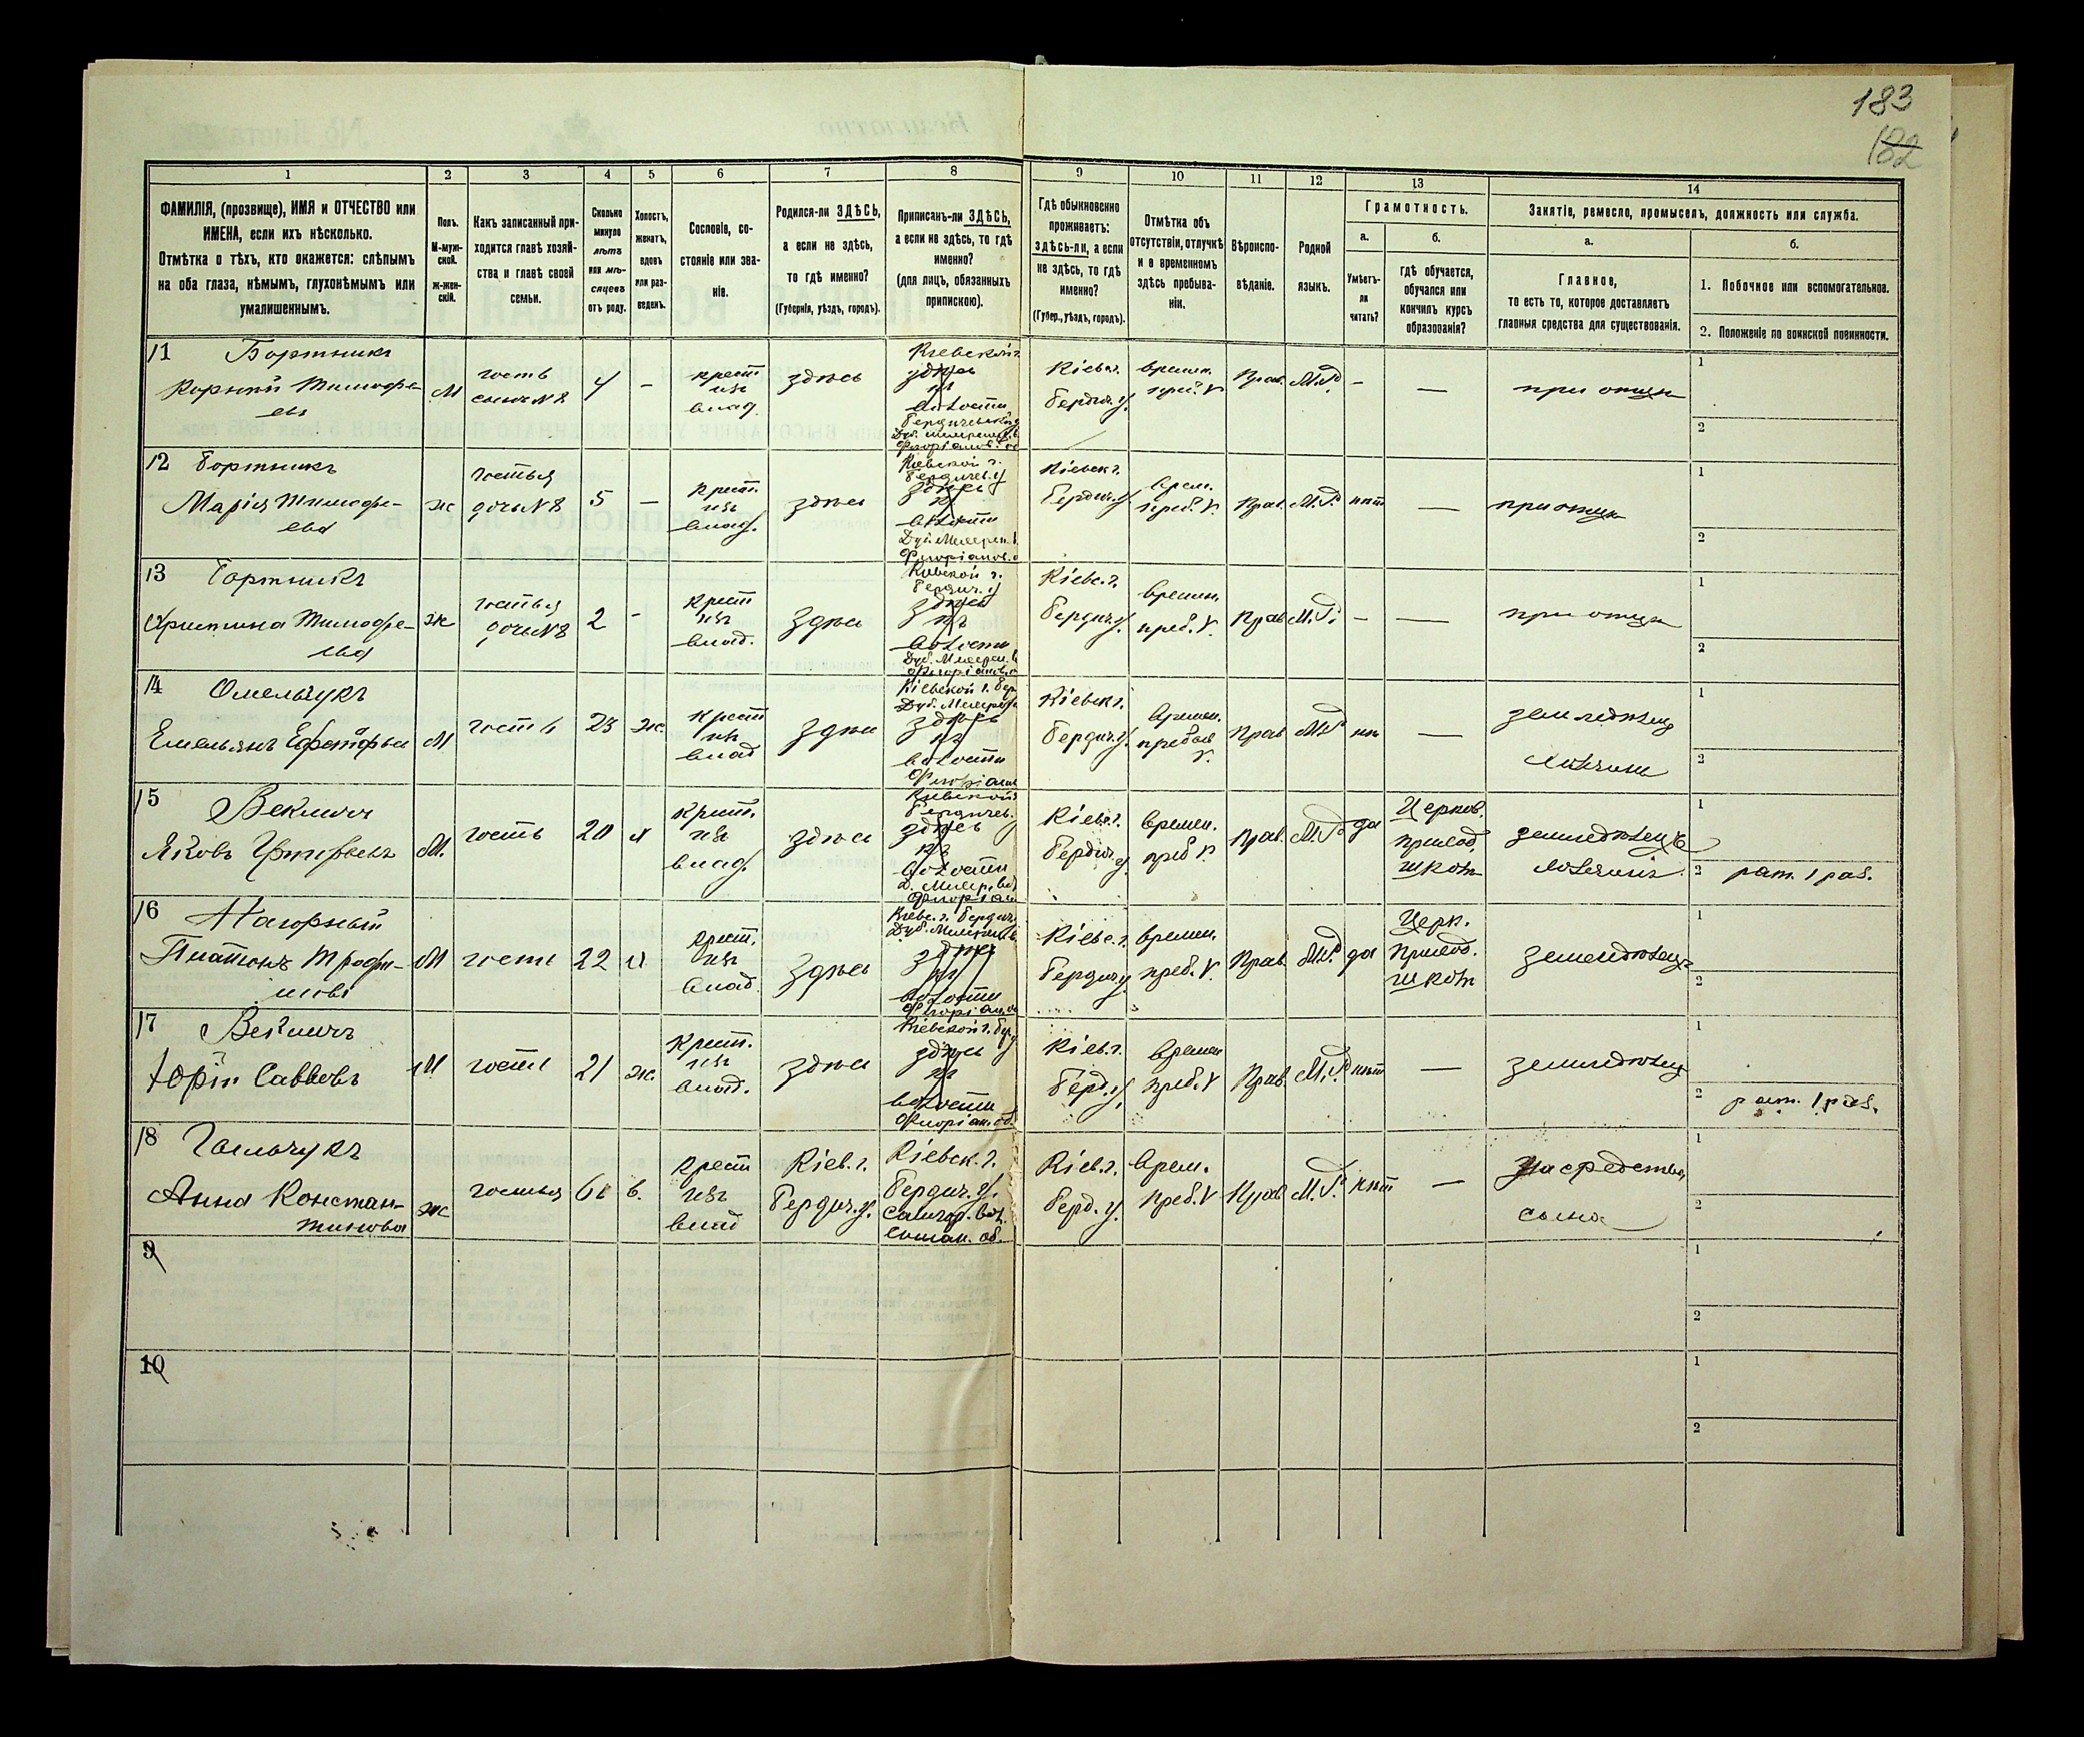 183
182
1 2 3 4 5 6 7 8 9 10 11 12 13 14
ФАМИЛІЯ, (прозвище), ИМЯ и ОТЧЕСТВО или
ИМЕНА, если ихъ нѣсколько.
Отмѣтка о тѣхъ, кто окажется: слѣпымъ
на оба глаза, нѣмымъ, глухонѣмымъ или
умалишеннымъ.
Полъ.
М-муж-
ской.
ж-жен-
скій.
Какъ записанный при-
ходится главѣ хозяй-
ства и главѣ своей
семьи.
Сколько
минуло
лѣтъ
или мѣ-
сяцевъ
отъ роду.
Холостъ,
женатъ,
вдовъ
или раз-
веденъ.
Сословіе, со-
стояніе или зва-
ніе.
Родился-ли ЗДѢСЬ,
а если не здѣсь,
то гдѣ именно?
(Губернія, уѣздъ, городъ).
Приписанъ-ли ЗДѢСЬ,
а если не здѣсь, то гдѣ
именно?
(для лицъ, обязанныхъ
припискою).
Гдѣ обыкновенно
проживаетъ:
здѣсь-ли, а если
не здѣсь, то гдѣ
именно?
(Губер., уѣздъ, городъ).
Отмѣтка объ
отсутствіи, отлучкѣ
и о временномъ
здѣсь пребыва-
ніи.
Вѣроиспо-
вѣданіе.
Родной
языкъ.
Грамотность.
а.
Умѣетъ-
ли
читать?
б.
гдѣ обучается,
обучался или
кончилъ курсъ
образованія?
Занятіе, ремесло, промыселъ, должность или служба.
а.
Главное,
то есть то, которое доставляетъ
главныя средства для существованія.
б.
1. Побочное или вспомогательное.
2. Положеніе по воинской повинности.
11 Бортникъ
Корнѣй Тимофе-
евъ
М
гость
сынъ N8
4
-
крест
изъ
влад.
здѣсь
Кіевской г.
здѣсь
въ
волости
Бердичевск. у
Кіев. г.
Бердич. у.
времен.
преб. V
Прав.
М.Р.
-
—
при отцѣ
1
2
12 Бортникъ
Марія Тимофе-
ева
ж
гостья
дочь N8
5
—
крест.
изъ
влад.
здѣсь
Кіевской г.
Бердичев. у
здѣсь
въ
волости
Кіевск г.
Бердич. у
Врем.
преб. V.
Прав.
М.Р.
нѣт
—
при отцѣ
1
2
13 Бортникъ
Христина Тимофе-
ева
ж
гостья
дочь N8
2
-
крест
изъ
влад.
здѣсь
Кіевской г.
Бердич. у
здѣсь
въ
волости
Кіевс. г.
Бердич. у.
времен.
преб. V.
Прав
М.Р.
-
—
при отцѣ
1
2
14 Омельчукъ
Емельянъ
М
гость
23
ж.
крест
изъ
влад
здѣсь
здѣсь
въ
волости
Кіевск г.
Бердич. у.
Времен.
пребыв
V.
Прав
М.Р
нѣт
—
земледѣлец
1
2
15 Векличъ
Яковъ
М.
гость
20
х
крест.
изъ
влад.
здѣсь
Кіевской г
Бердичев.
здѣсь
въ
волости
Кіевс. г.
Бердич. у
времен.
преб V.
Прав.
М.Р
да
Церков.
приход.
школ
земледѣлецъ
1
2 рат. 1 раз.
16 Нагорный
Платонъ Трофи-
мовъ
М
гость
22
х
крест.
изъ
влад.
здѣсь
Кіевс. г. Бердич.
здѣсь
въ
волости
Кіевс. г.
Бердич. у
времен.
преб. V.
Прав.
М.Р.
да
Церк.
приход.
школ
земледѣлец
1
2
17 Векличъ
Юрій Саввовъ
М
гость
21
ж.
крест.
изъ
влад.
здѣсь
Кіевской г. Бер.
здѣсь
въ
волости
Флоріан. об.
Кіев. г.
Берд. у.
Времен
преб. V
Прав.
М.Р
нѣт
—
земледѣлец
1
2 рат. 1 раз.
18 Гальчукъ
Анна Констан-
тинова
ж
гостья
61
в.
крест
изъ
влад
Кіев. г.
Бердич. у.
Кіевск. г.
Бердич. у.
Самгор. вол.
Кіев. г.
Берд. у.
Врем.
преб. V
Прав
М.Р.
нѣт
—
На средства
сына
1
2
9
1
2
10
1
2